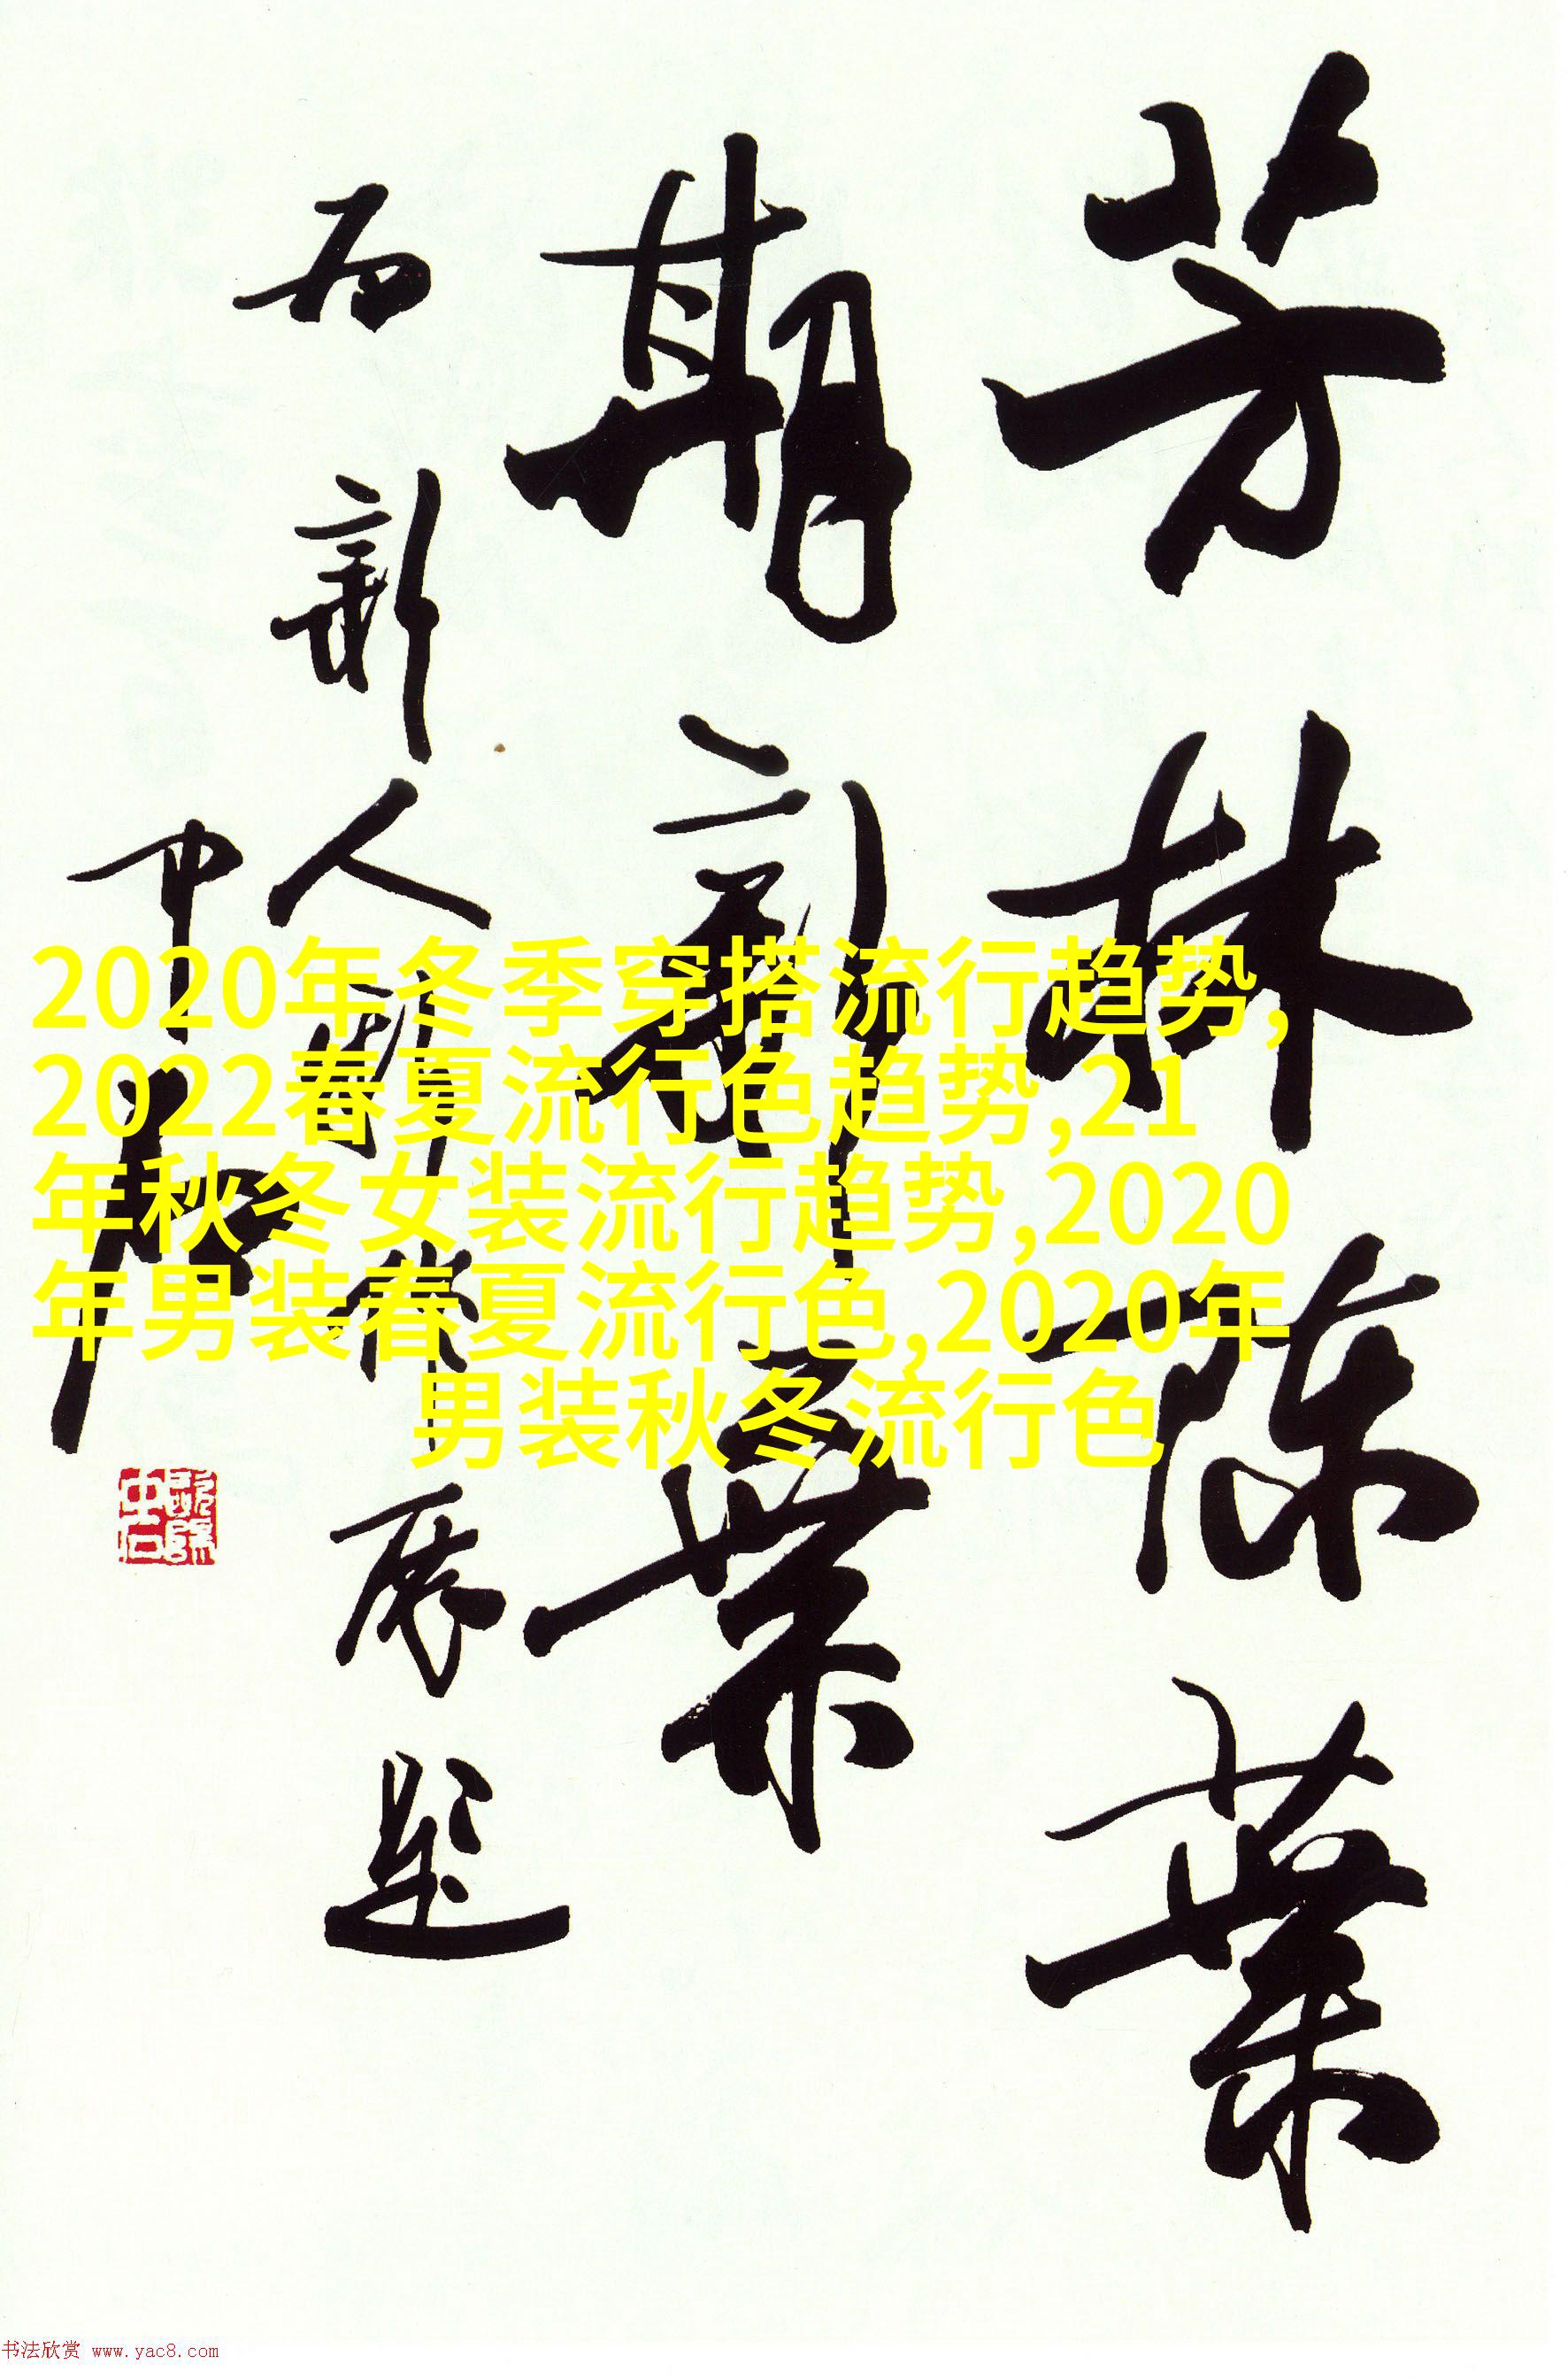 芳林陳葉
期新葉
新人展題
中石
歐陽中石
2020年冬季穿搭流行趋势,
2022春夏流行色趋势,21
年秋冬女装流行趋势,2020
年男装春夏流行色,2020年
男装秋冬流行色
书法欣赏 www.yac8.com